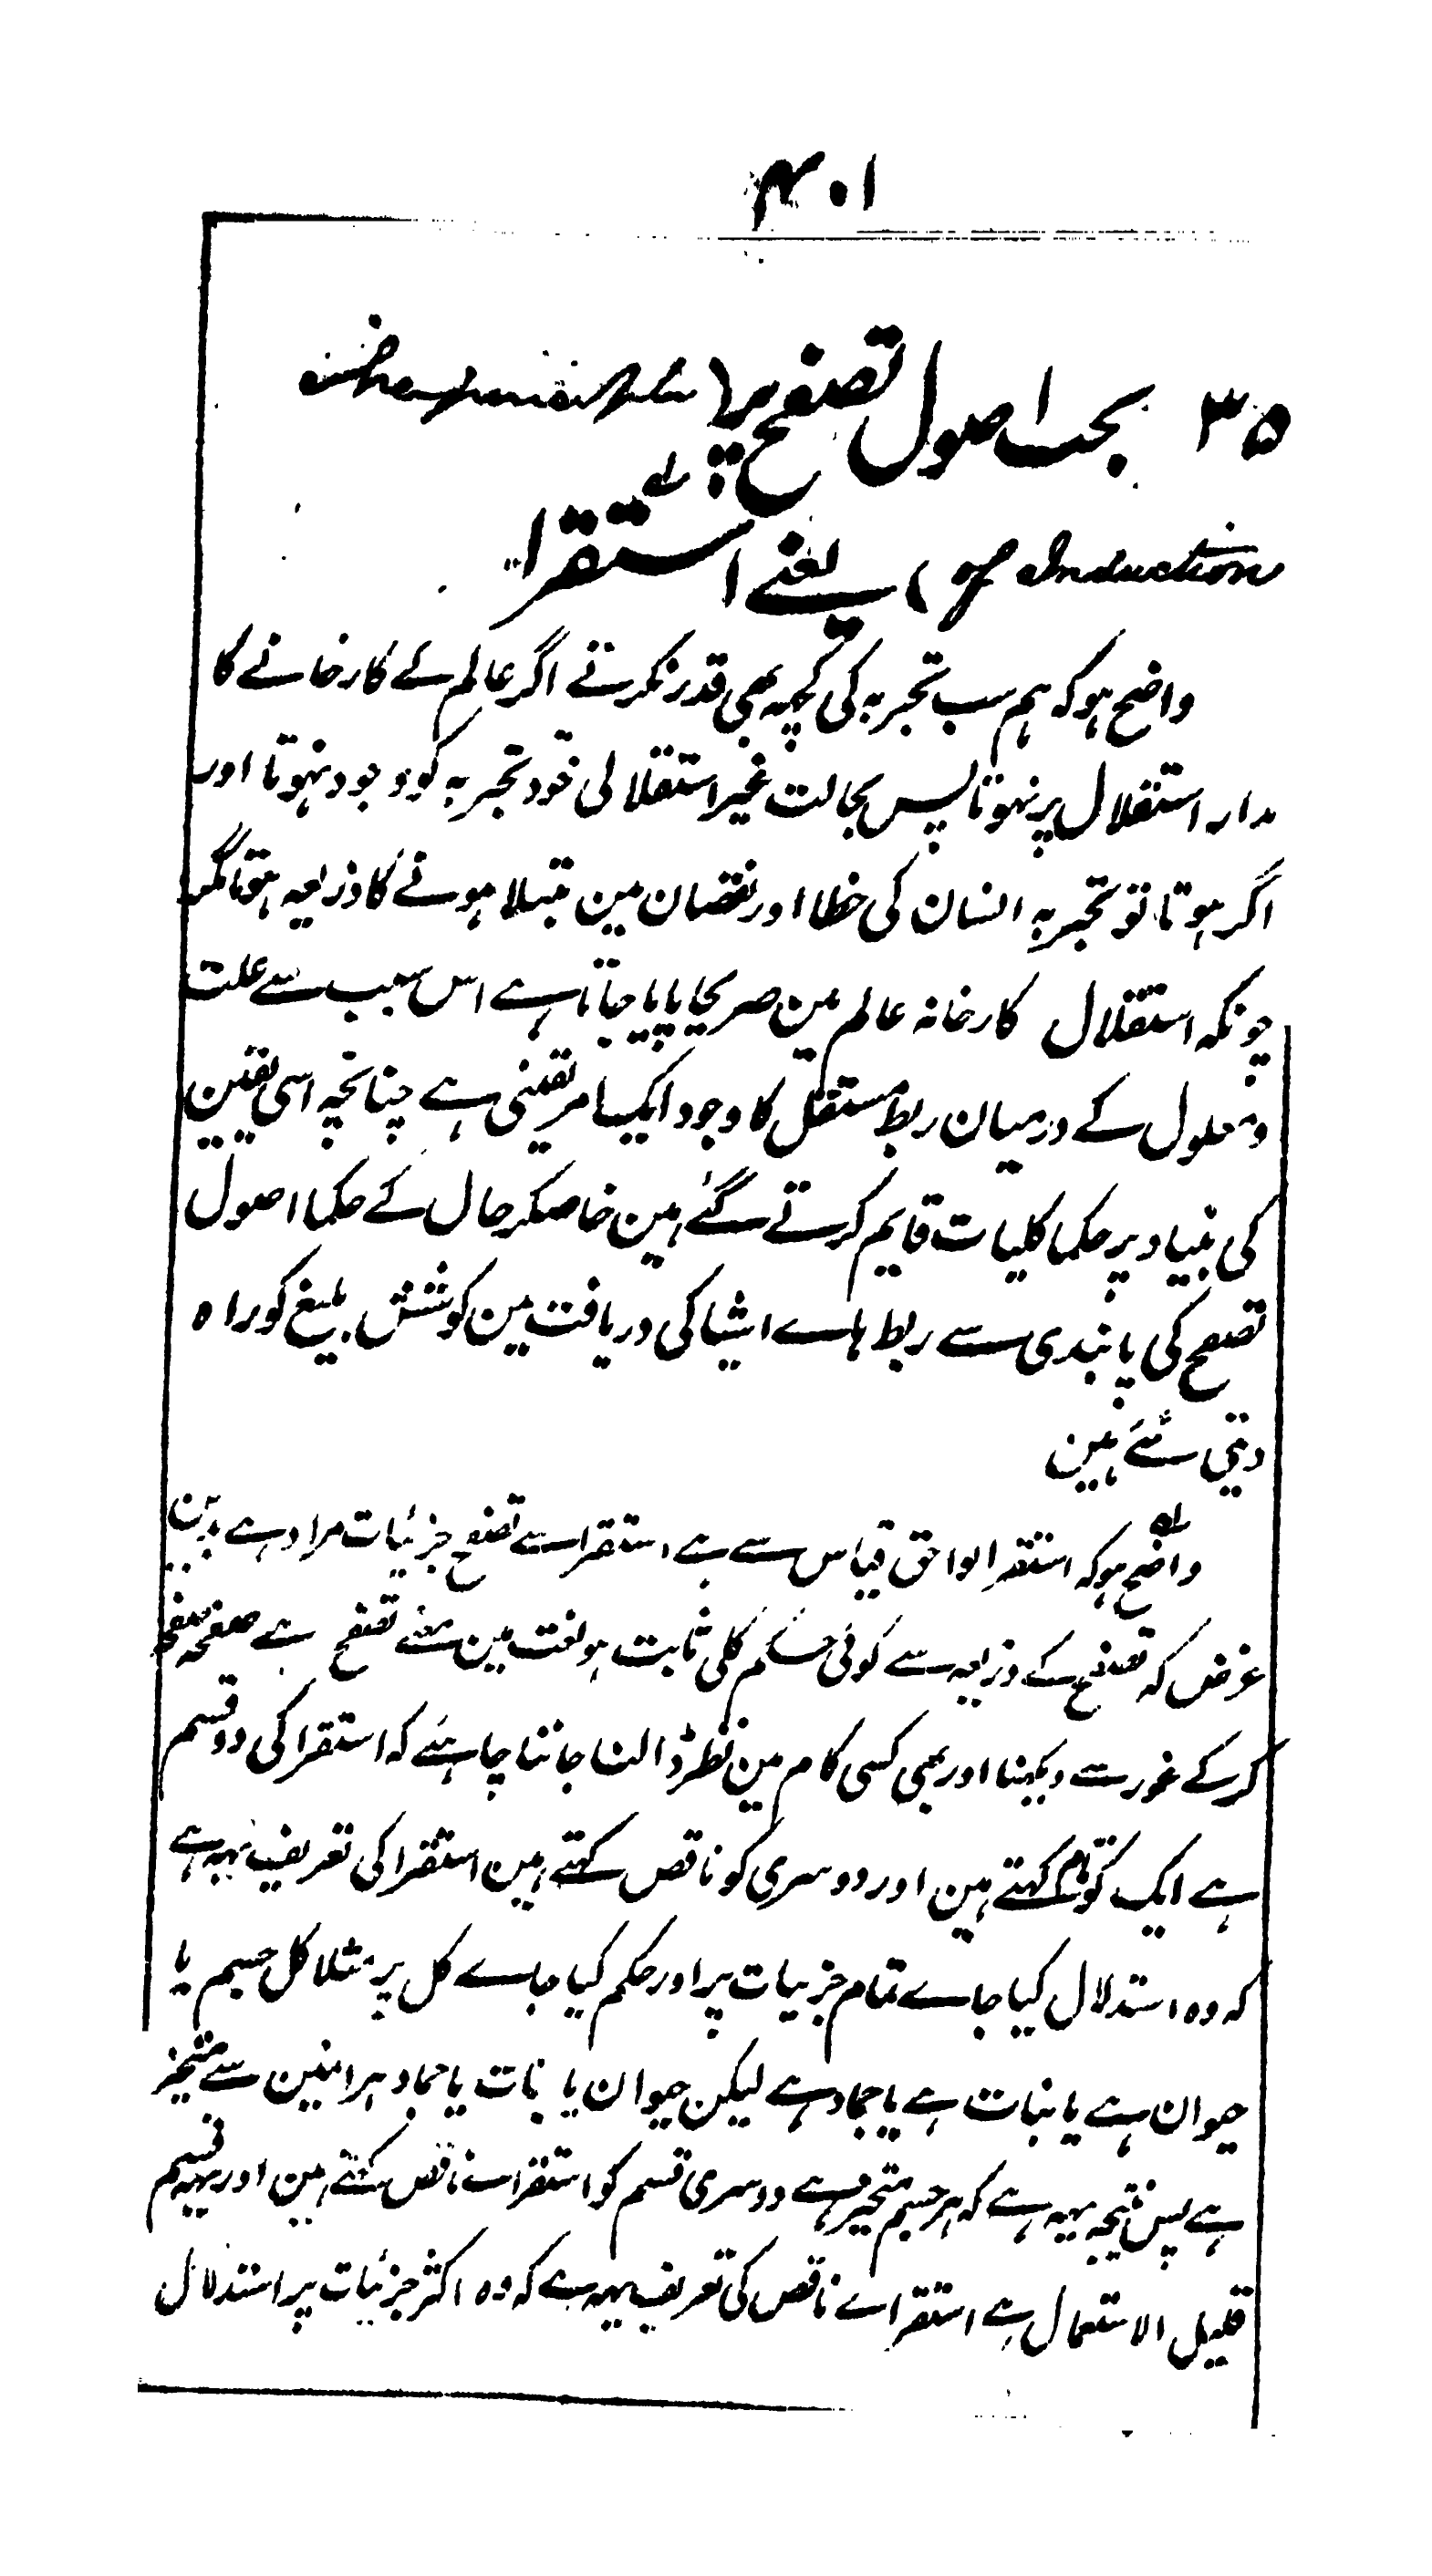 ۴۰۱
۳۵ بحث اصول تصفح پر (The Principles
of Induction) یعنے استقرا
واضح ہو کہ ہم سب تجربہ کی کچہہ بھی قدر نکرتے اگر عالم کے کارخانے کا
مدار استقلال پر نہوتا پس بحالت غیر استقلالی خود تجربہ کو وجود نہوتا اور
اگر ہوتا تو تجربہ انسان کی خطا اور نقصان مین مبتلا ہونے کا ذریعہ ہوتا مگر
چونکہ استقلال کارخانہ عالم مین صریحا پایا جاتا ہے اس سبب سے علت
و معلول کے درمیان ربط مستقل کا وجود ایک امر یقینی ہے چنانچہ اسی یقین
کی بنیاد پر حکما کلیات قایم کرتے گئے ہین خاصکر حال کے حکما اصول
تصفح کی پابندی سے ربط ہاے اشیا کی دریافت مین کوشش بلیغ کو راہ
دیتی گئے ہین
واضح ہو کہ استقرا لواحق قیاس سے ہے استقرا سے تصفح جزئیات مراد ہے بدین
غرض کہ تصفح کے ذریعہ سے کوئی حکم کلی ثابت ہو لغت مین معنے تصفح ہے صفحہ صفحہ
کر کے غور سے دیکہنا اور بھی کسی کام مین نظر ڈالنا جاننا چاہئے کہ استقرا کی دو قسم
ہے ایک کو تام کہتے ہین اور دوسری کو ناقص کہتے ہین استقرا کی تعریف یہہ ہے
کہ وہ استدلال کیا جاے تمام جزئیات پر اور حکم کیا جاے کل پر مثلا کل جسم یا
حیوان ہے یا نبات ہے یا جماد ہے لیکن حیوان یا نبات یا جماد ہر امنین سے متحیز
ہے پس نتیجہ یہہ ہے کہ ہر جسم متحیز ہے دوسری قسم کو استقراے ناقص کہتے ہین اور یہہ قسم
قلیل الاستعمال ہے استقراے ناقص کی تعریف یہہ ہے کہ وہ اکثر جزئیات پر استدلال